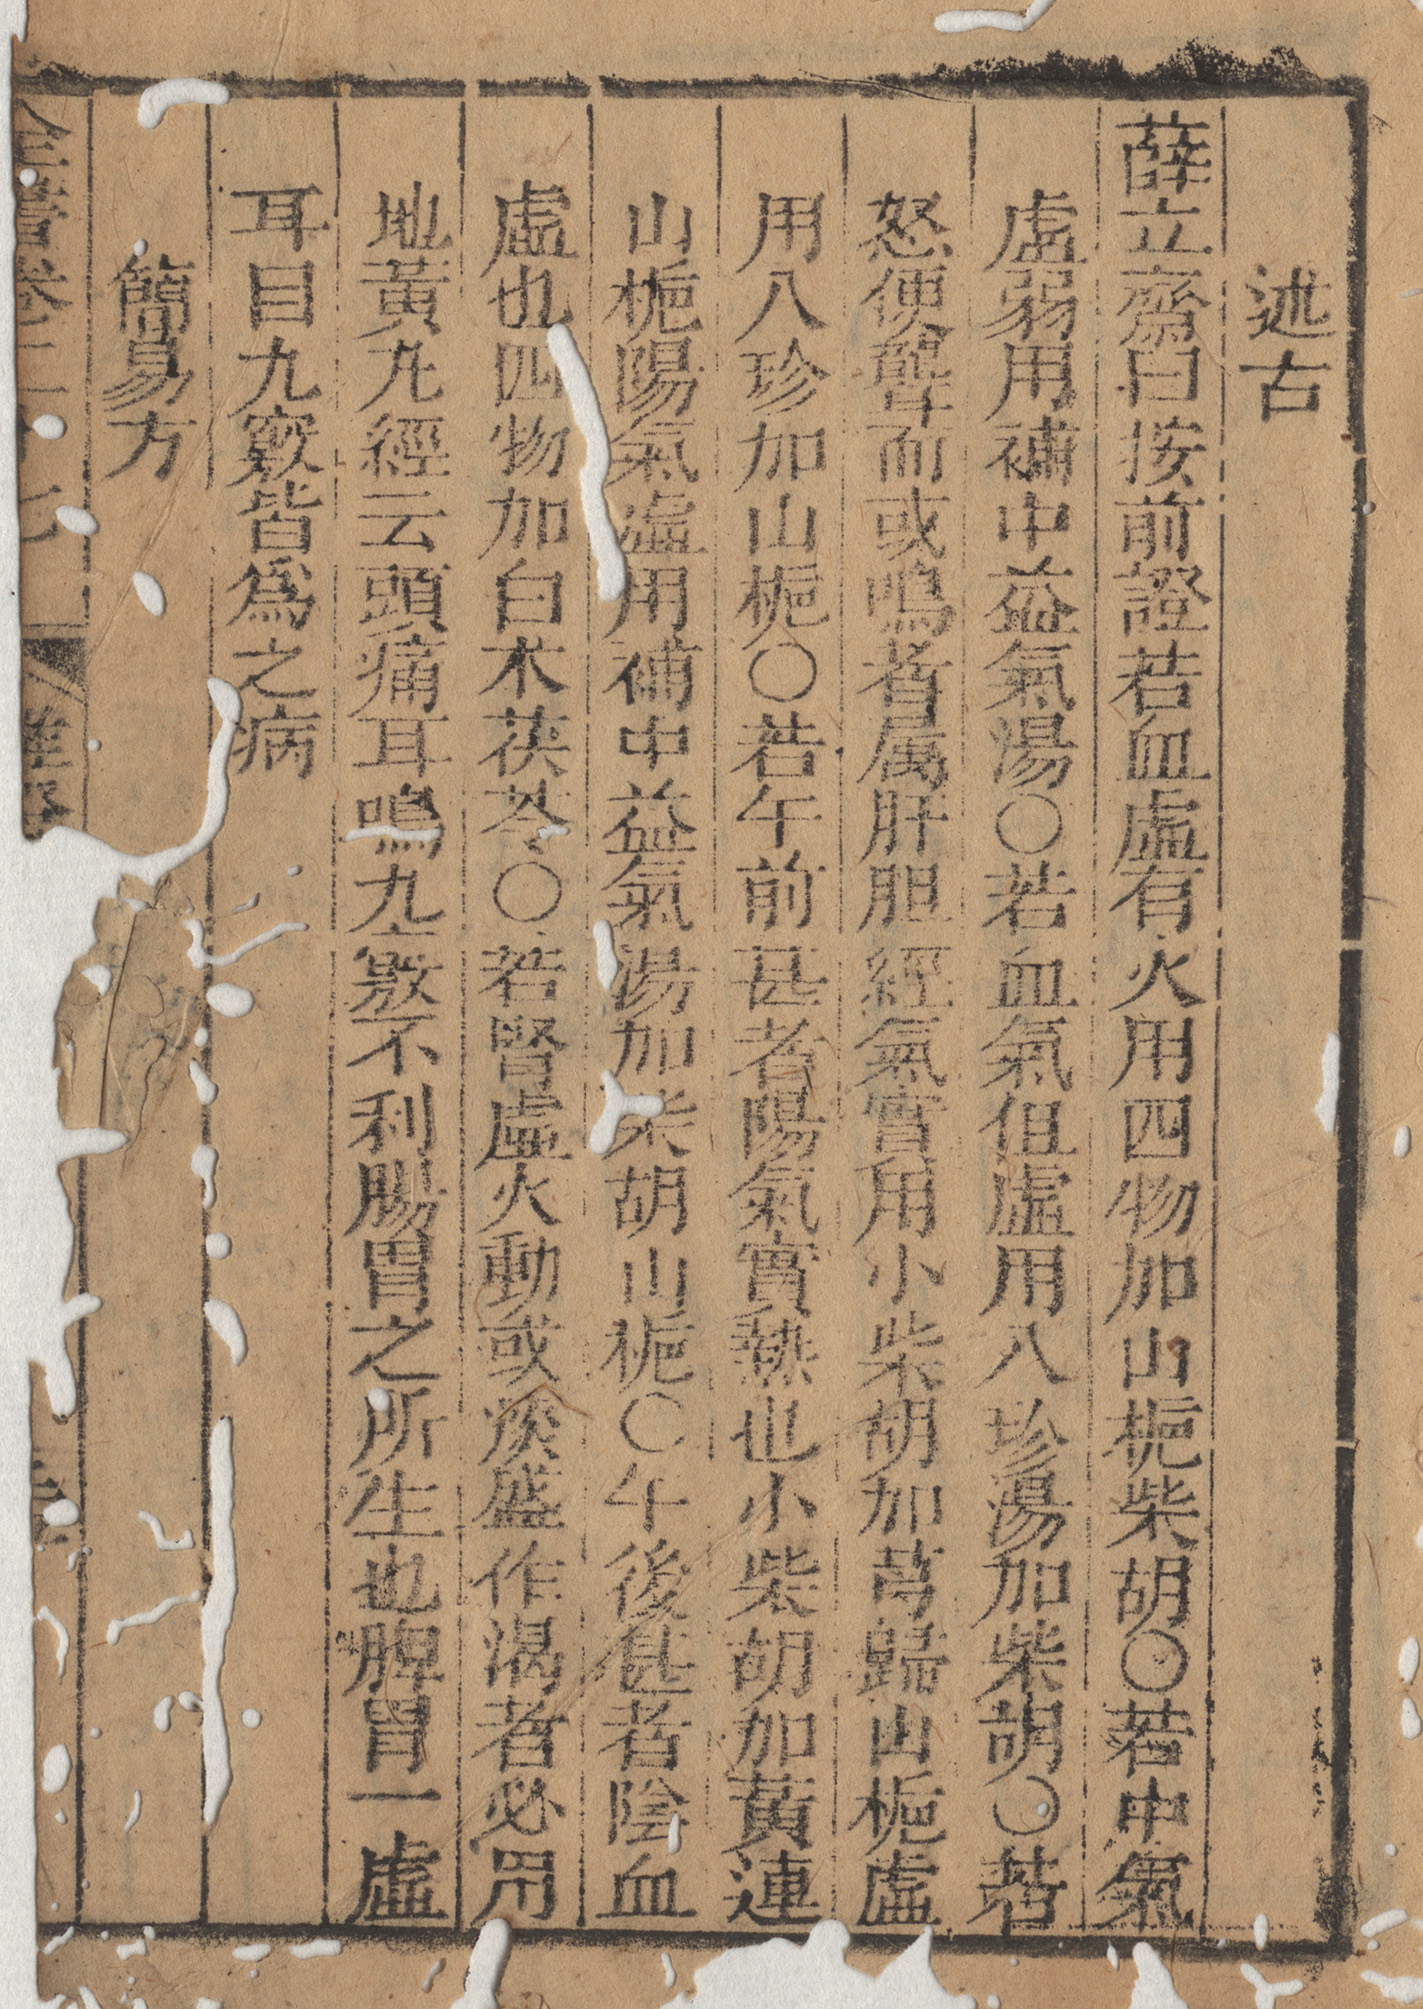 述古
薛立齋曰按前證若血虛有火用四物加山梔柴胡〇若中氣
虛弱用補中益氣湯〇若血氣但虛用八珍湯加柴胡〇若
怒便聾而或鳴者属肝胆經氣實用小柴胡加芎歸山梔虛
用八珍加山梔〇若午前甚者陽氣實熱也小柴胡加黃連
山梔陽氣虛用補中益氣湯加柴胡山梔〇午後甚者陰血
虛也四物加白术茯苓〇若腎虛火動或痰盛作渴者必用
地黃丸經云頭痛耳鳴九竅不利腸胃之所生也脾胃一虛
耳目九竅皆爲之病
簡易方
全書卷二十七